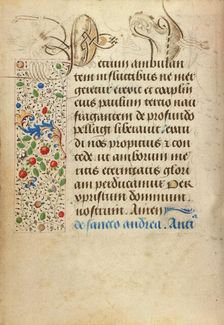 Petrum ambulan
tem in fluctibus ne mer
geretur erexit et coapl̄m
eius paulum tercio nau
fragantem de profundo
pellagi liberauit exau
di nos propicius et con
cede ut amborum me
ritis eternitatis glori
am perducamur Per
xpristum dominum
nostrum. Amen
de sancto andrea. Anti